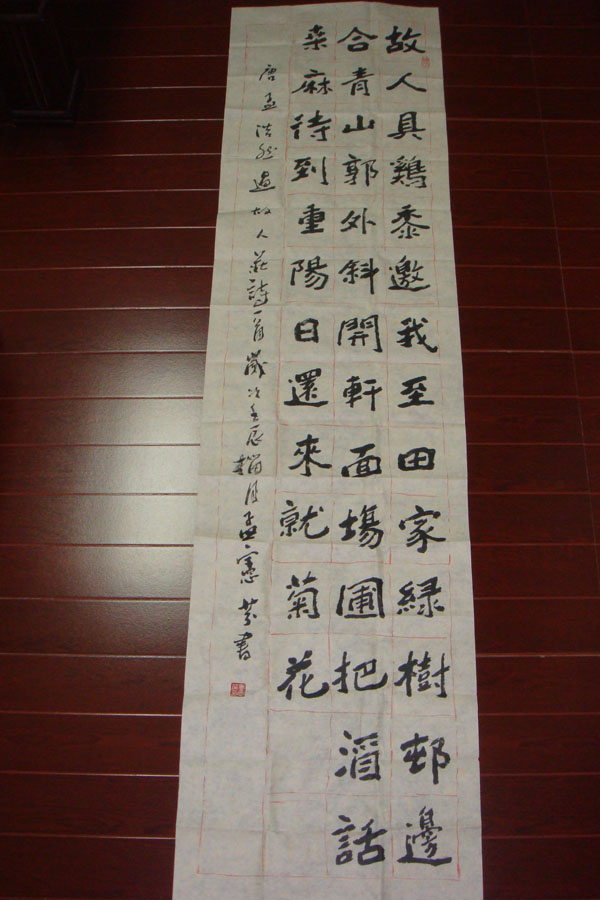 故人具鷄黍邀我至田家緑樹邨邊
合青山郭外斜開軒面塲圃把酒話
桒麻待到重陽日還來就菊花
唐孟浩然過故人莊詩一首歲次壬辰月孟憲書